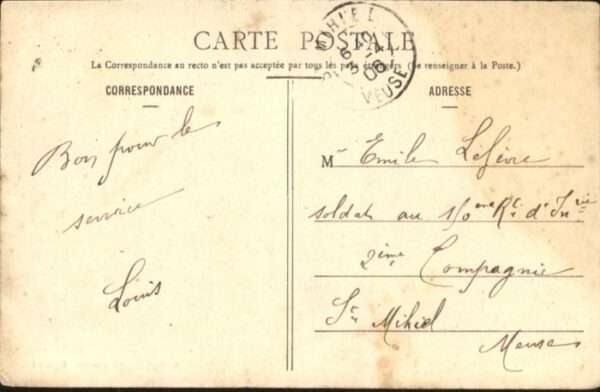 CARTE POSTALE
La Correspondance au recto n'est pas acceptée par tous les pays étrangers (Se renseigner à la Poste.)
CORRESPONDANCE
ADRESSE
MEUSE
Bon pour le
service
Louis
M Emile Lefèvre
soldat au Rt d'Inrie
2ème Compagnie
St Mihiel
Meuse